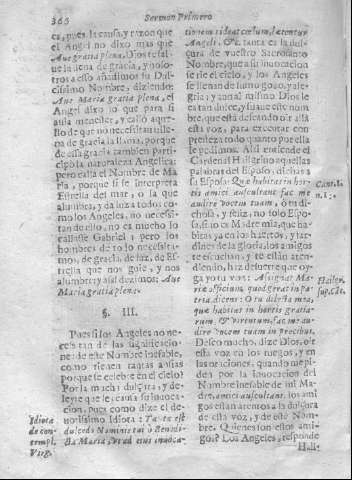 366 Sermon Primero
ca, pues la causa, y razon que
el Angel no dixo mas que
Aue gratia plena, Dios te sal-
ue llena de gracia, y noso-
tros a esto añadimos su Dul-
cissimo Nombre, diziendo:
Aue Maria gratia plena, el
Angel dixo lo que para si
auia menester, y callò aque-
llo de que no necessitaua: lle-
na de gracia la llama, porque
de essa gracia tambien parti-
cipò la naturaleza Angelica:
pero calla el Nombre de Ma-
ria, porque se interpreta
Estrella del mar, ò la que
alumbra, y da luz a todos: co-
mo los Angeles, no necessi-
tan de ello, no es mucho lo
callasse Gabriel: pero los
hombres de todo necessita-
mos, de gracia, de luz, de Es-
trella que nos guie, y nos
alumbre; y assi dezimos: Aue
Maria gratia plena.
§. III.
Pues si los Angeles no ne-
cessitan de las significacio-
nes de este Nombre inefable,
como tienen tantas ansias
porque se celebre en el cielo?
Por la mucha dulçura, y de-
leyte que les causa su inuoca-
cion, pues como dize el de-
uotissimo Idiota: Tanta est
dulcedo Nominis tui ò Benedi-
cta Maria, vt ad eius inuoca-
Idiota
de con-
templ.
Virg.
tionem rideat cœlum, lætentur
Angeli. Que tanta es la dul-
çura de vuestro Sacrosanto
Nombre, que a su inuocacion
se rie el cielo, y los Angeles
se llenan de sumo gozo, y ale-
gria; y aun al mismo Dios le
es tan dulce, y suaue este nom-
bre, que està deseando oir allà
esta voz, para executar con
presteza todo quanto por ella
le pedimos. Assi entiende el
Cardenal Hailgrino aquellas
palabras del Esposo, dichas a
su Esposa: Quæ habitas in hor-
tis amici auscultant, fac me
audire vocem tuam, ò tu di-
chosa, y feliz, no solo Espo-
sa, sino es Madre mia, que ha-
bitas ya en los huertos, y jar-
dines de la gloria, los amigos
te escuchan, y te estàn aten-
diendo, haz de suerte que oy-
ga yo tu voz: Assignat Ma-
riæ officium, quod gerat in pa-
tria, dicens: O tu dilecta mea,
quæ habitas in hortis gratia-
rum, & virtutum, fac me au-
dire vocem tuam in precibus.
Deseo mucho, dize Dios, oir
esta voz en los ruegos, y en
las oraciones, quando me pi-
den por la inuocacion del
Nombre inefable de mi Ma-
dre, amici auscultant, los ami-
gos estàn atentos a la dulçura
de esta voz, y de este Nom-
bre. Quienes son estos ami-
gos? Los Angeles, responde
Hail-
Cant. 8.
n. 13.
Hailgr.
sup. Cat.